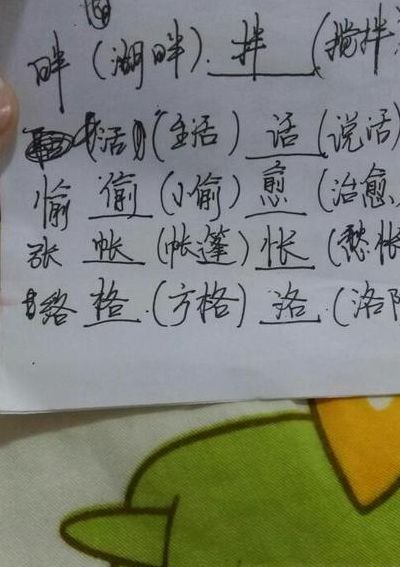 畔 (湖畔). 拌 (搅拌
(活) (生活) 话 (说话)
愉 偷 (小偷) 愈 (治愈
张 帐 (帐篷) 怅 (愁怅
络 格. (方格) 洛. (洛阳